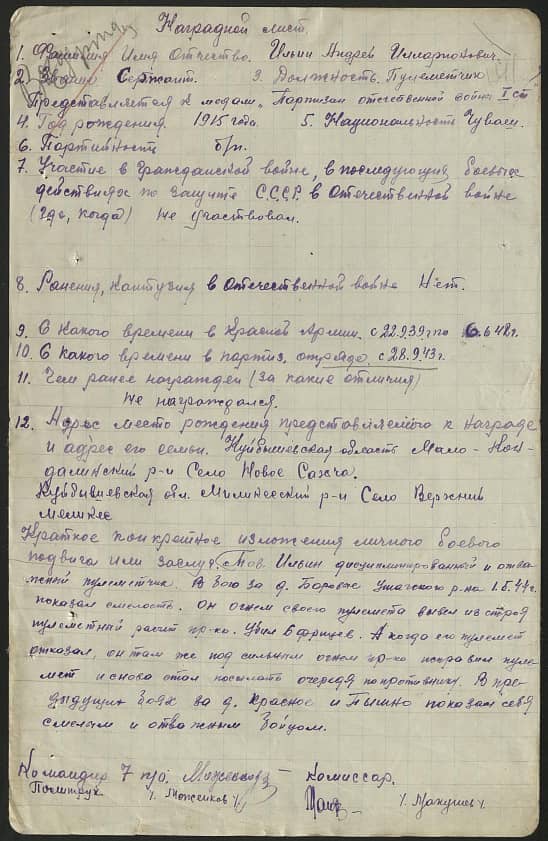 Наградной лист.
1. Фамилия Имя Отчество. Ильин Андрей Илларионович.
2. Звание Сержант. 3. Должность. Пулеметчик
Представляется к медали „Партизан отечественной войны I ст
4. Год рождения 1915 года. 5. Национальность Чуваш.
6. Партийность б/п.
7. Участие в Гражданской войне, в последующих боевых
действиях по защите С.С.С.Р. в Отечественной войне
(Где, когда) Не участвовал.
8. Ранения, контузия в Отечественной войне Нет.
9. С Какого времени в Красной Армии. с 22.9.39 г по
10. С какого времени в партиз. отряде. с 28.9.43 г.
11. Чем ранее награжден (за какие отличия)
Не награждался.
12. Адрес место рождения представляемого к награде
и адрес его семьи. Куйбышевская область Мало-
р-н Село Новое
Куйбышевская обл. р-н Село Верхний
Мелекес
Краткое конкретное изложения личного боевого
подвига или заслуг. Тов. Ильин дисциплинированный и отва-
жный пулеметчик. В бою за д. Боровые Ушачского р-на
показал смелость. Он огнем своего пулемета вывел из строя
пулеметный расчет пр-ка. Убил 6 фрицев. А когда его пулемет
отказал, он там же под сильным огнем пр-ка исправил пуле-
мет и снова стал посылать очереди по противнику. В пре-
дыдущих боях за д. Красное и Пышно показал себя
смелым и отважным бойцом.
Командир 7 п/о: Комиссар.
Политрук /. Моженков / /. Макушев /.